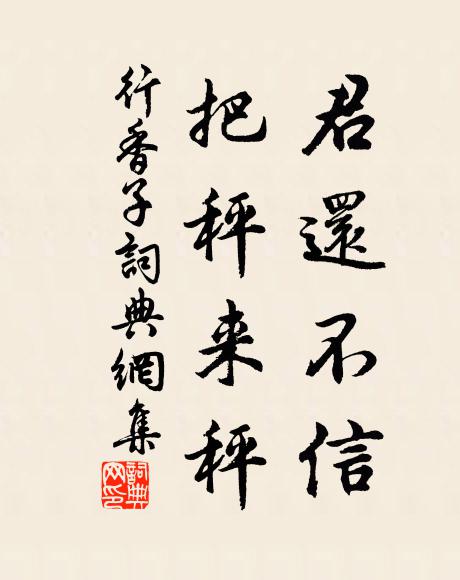 君還不信
把秤来秤
行香子詞典網集
詞典
网印